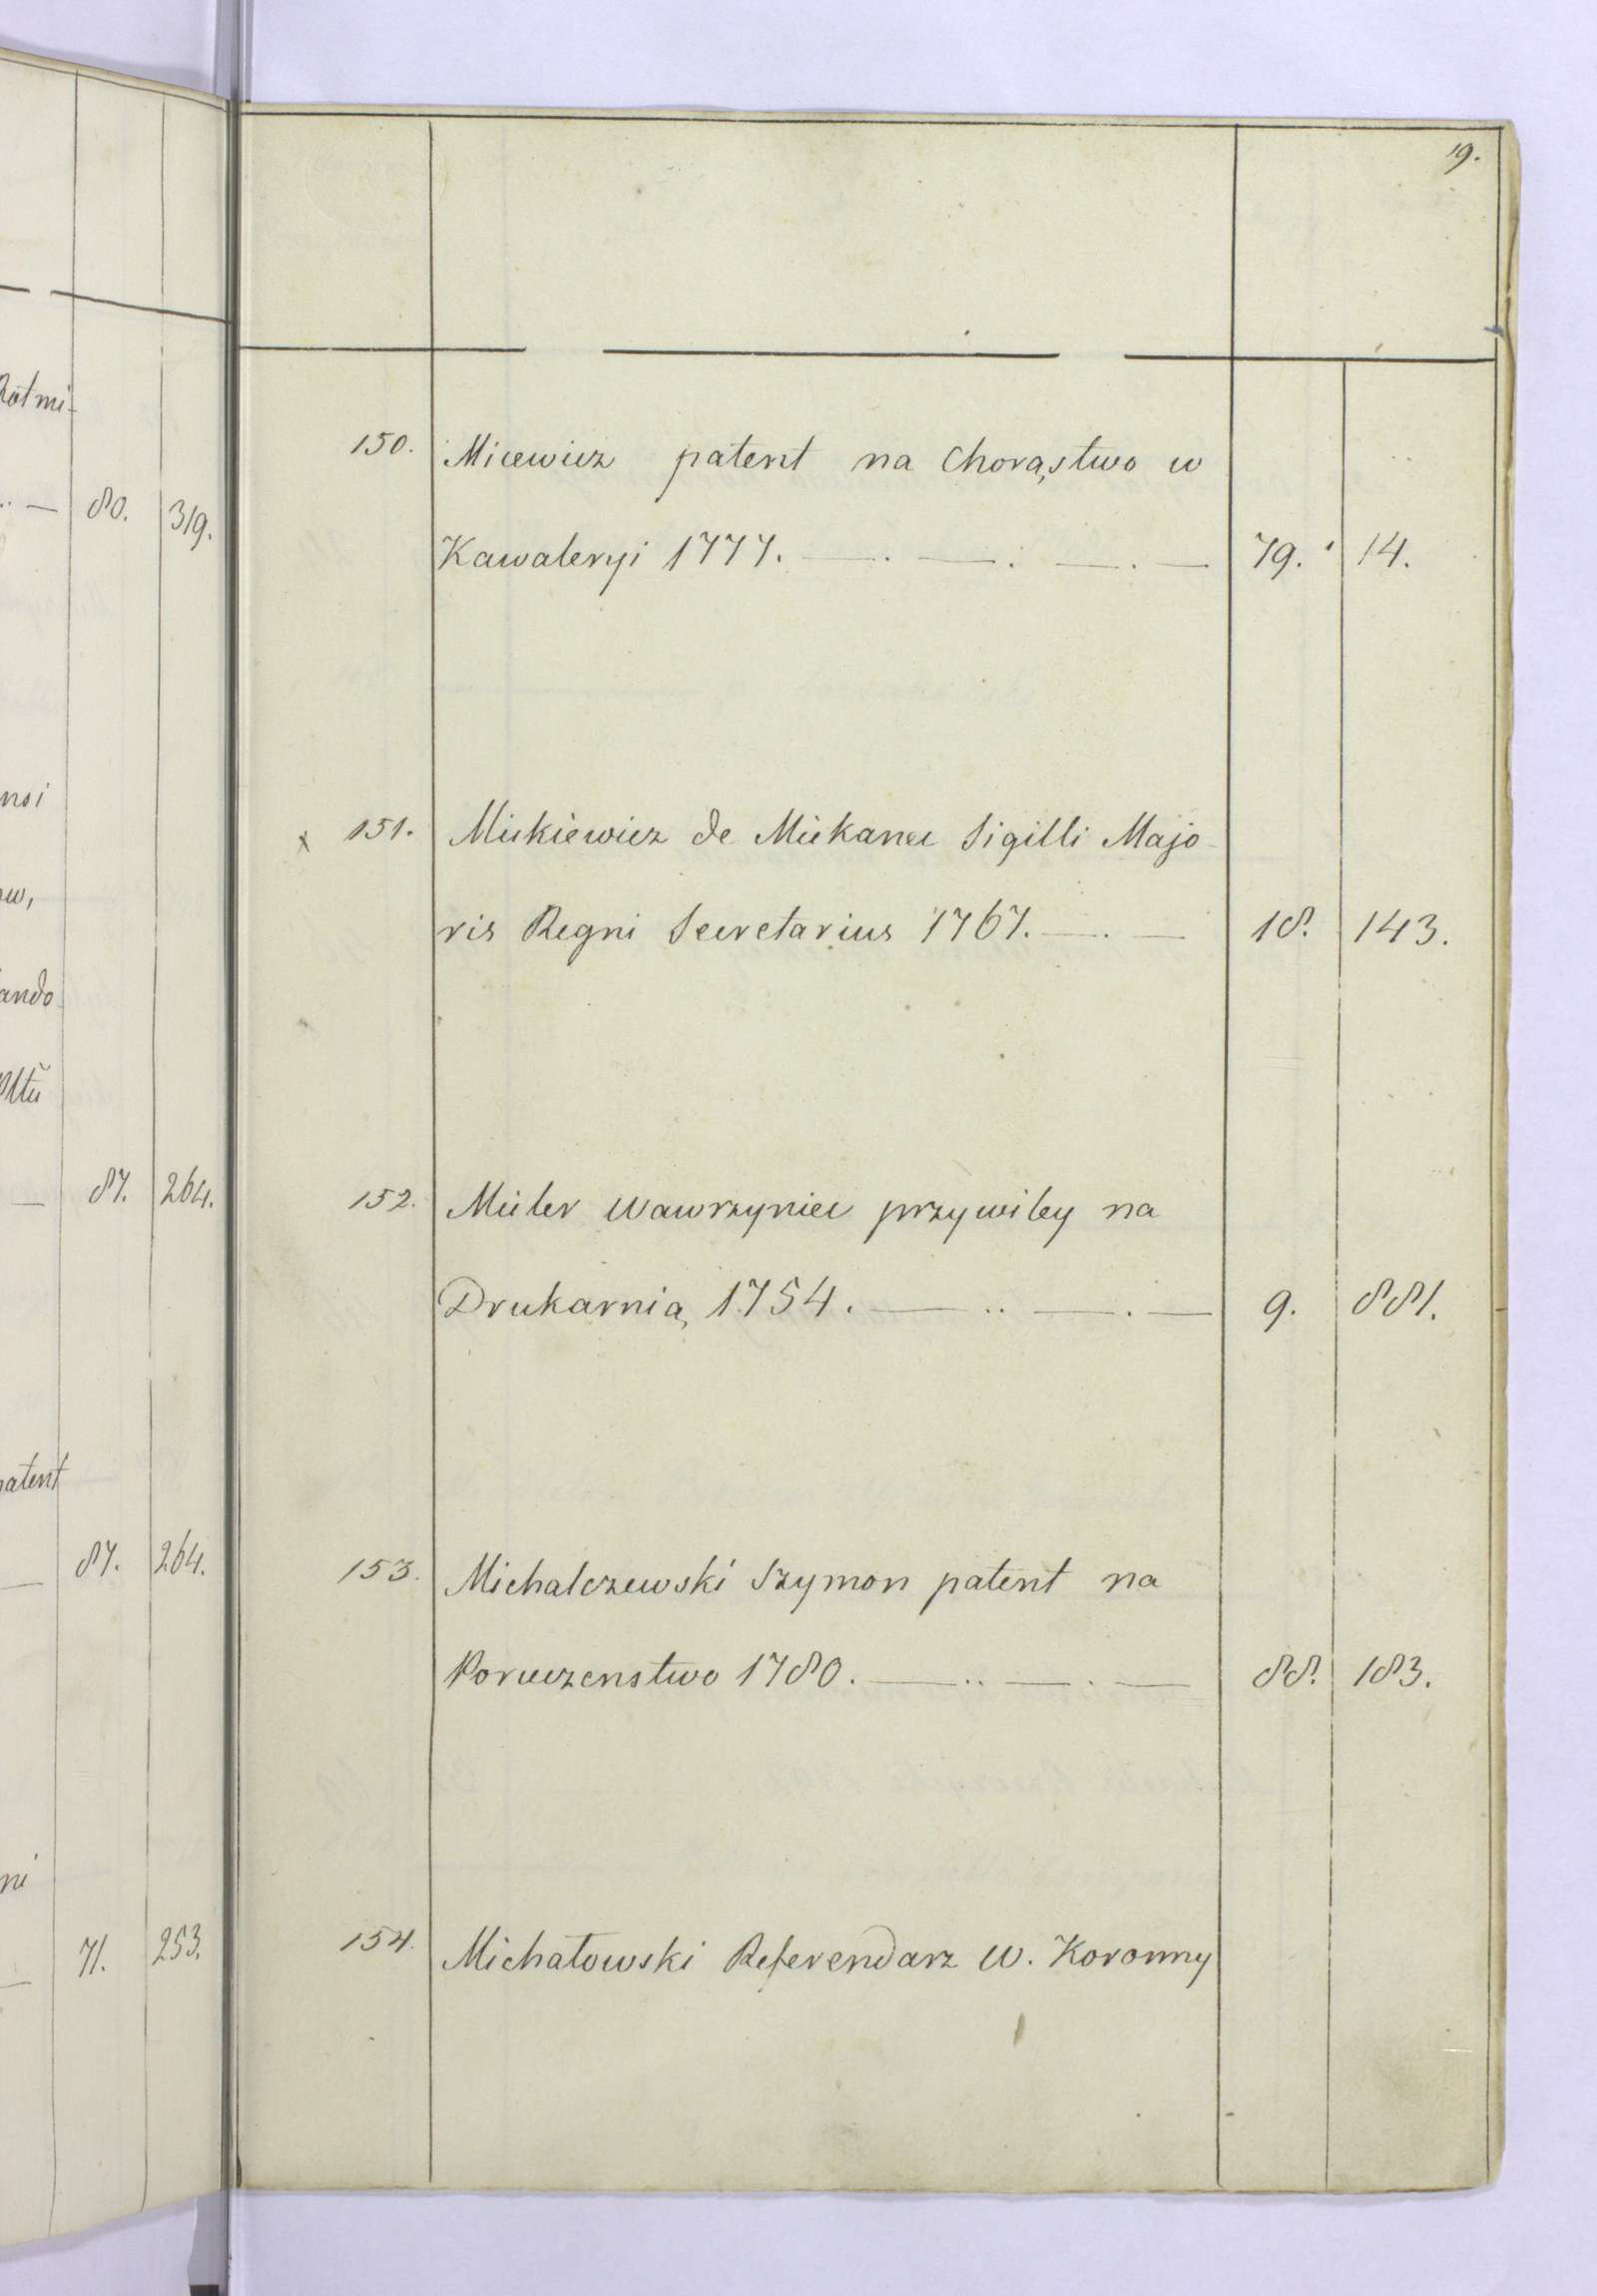 Rotmi-
80. 319.
nsi
w,
ando
87. 264.
patent
87. 264.
ni
71. 253.
19.
150. Micewicz patent na Chorąstwo w
Kawaleryi 1777. — . — . — . — 79. 14.
x 151. Mickiewicz de Mickance Sigilli Majo-
ris Regni Secretarius 1767. — . — 18. 143.
152. Micler Wawrzyniec przywiley na
Drukarnią 1754. — .. — . — 9. 881.
153. Michalczewski Szymon patent na
Poruczenstwo 1780. — .. — . — 88. 183.
154. Michałowski Referendarz W. Koronny